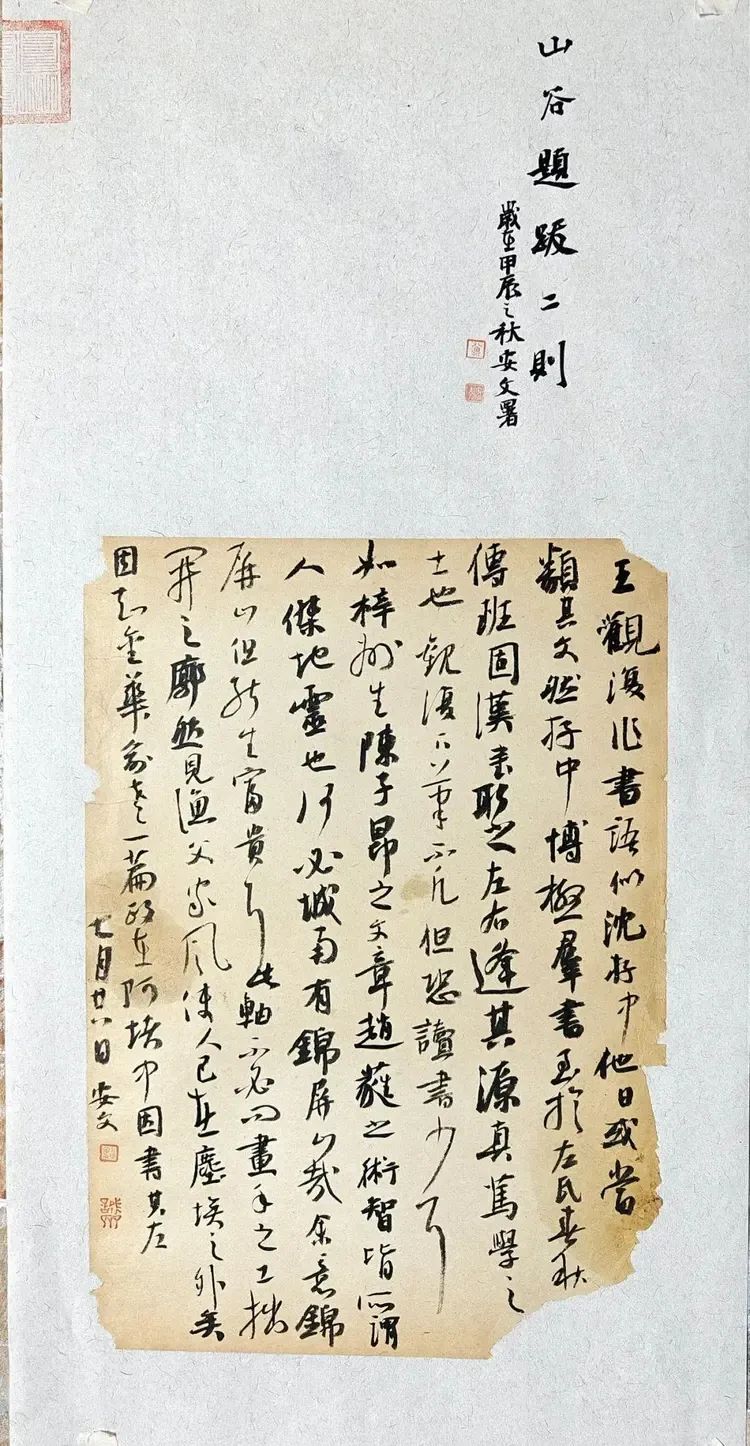 山谷題跋二則
歲在甲辰之秋安文署
王觀復作書語似沈存中他日或當
類其文然存中博極羣書至於左氏春秋
傳班固漢書取之左右逢其源真篤學之
士也觀復下筆不凡但恐讀書少耳
如梓州生陳子昂之文章趙蕤之術智皆所謂
人傑地靈也何必城南有錦屏山哉余意錦
屏山但能生富貴耳此軸不必問畫手之工拙
開之廓然見漁父家風使人已在塵埃之外矣
因知金華俞老一篇政在阿堵中因書其左
七月廿八日安文